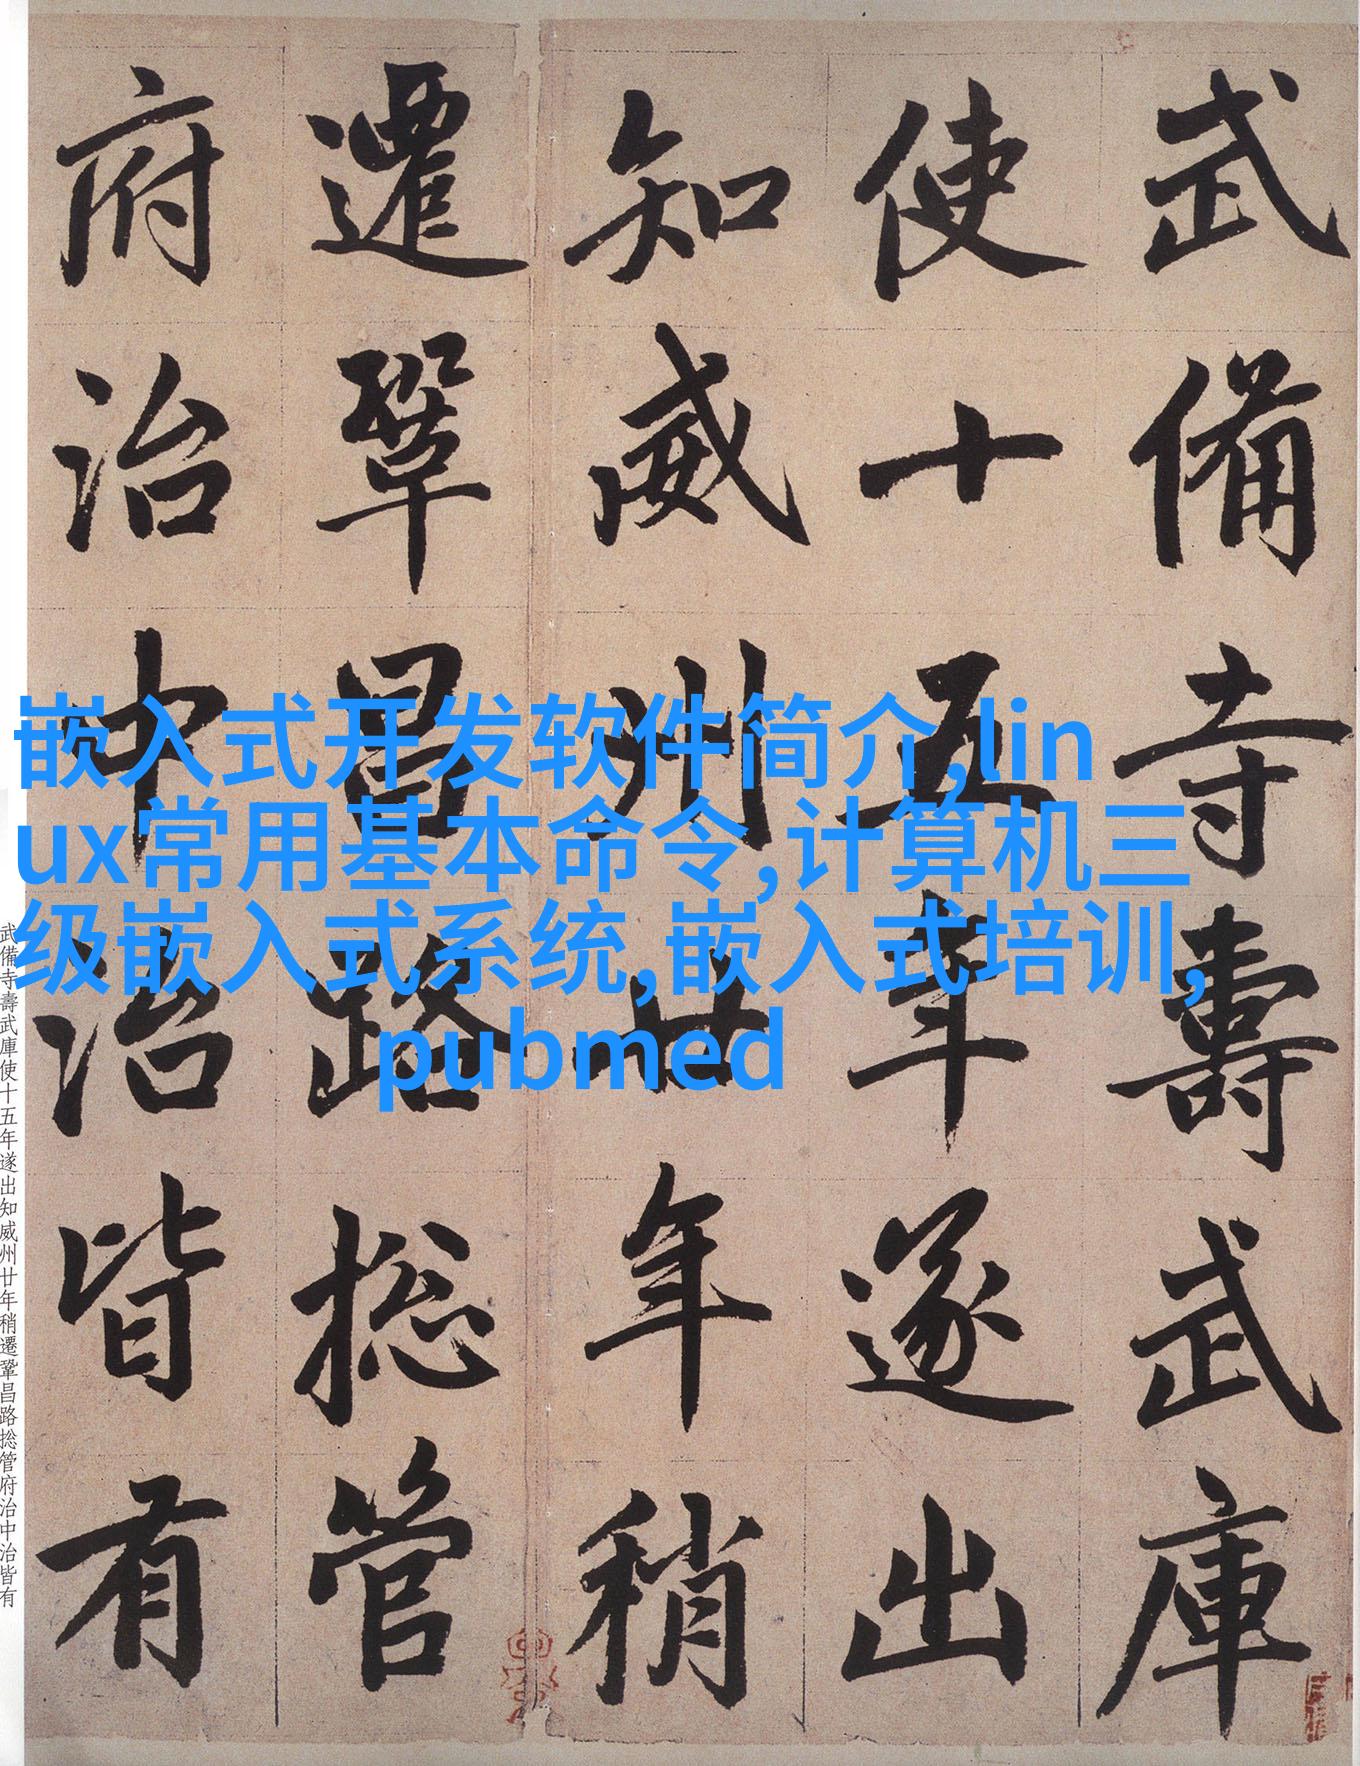 武備寺壽武庫
使十五年遂出
知威州廿年稍
遷鞏昌路捴管
府治中治皆有
嵌入式开发软件简介,lin
ux常用基本命令,计算机三
级嵌入式系统,嵌入式培训,
pubmed
武備寺壽武庫使十五年遂出知威州廿年稍遷鞏昌路捴管府治中治皆有